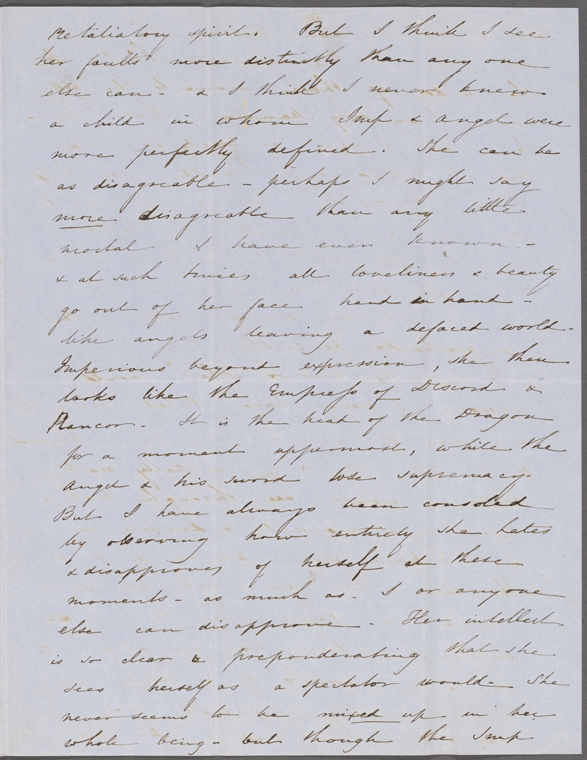 retaliatory spirit. But I think I see
her faults more distinctly than any one
else can - & I think I never knew
a child in whom Imp & angel were
more perfectly defined. She can be
as disagreable - perhaps I might say
more disagreable than any little
mortal I have ever known -
& at such times all loveliness & beauty
go out of her face hand in hand -
like angels leaving a defaced world -
Imperious beyond expression, she then
looks like the Empress of Discord &
Rancor. It is the head of the Dragon
for a moment uppermost, while the
Angel & his sword lose supremacy.
But I have always been consoled
by observing how entirely she hates
& disapproves of herself at these
moments - as much as - I or anyone
else can disapprove - Her intellect
is so clear & preponderating that she
sees herself as a spectator would - She
never seems to be mixed up in her
whole being - but though the Imp